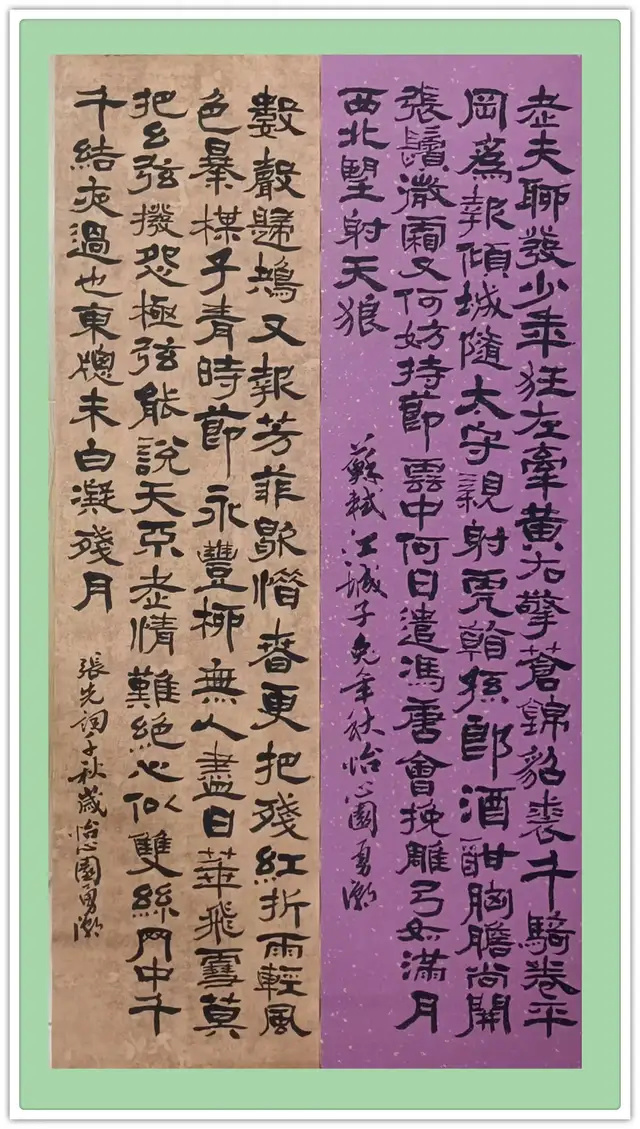 老夫聊發少年狂左牽黃右擎蒼錦貂裘千騎卷平
岡爲報傾城隨太守親射虎看孫郎酒酣胸膽尚開
張鬢微霜又何妨持節雲中何日遣馮唐會挽雕弓如滿月
西北望射天狼
蘇軾江城子兔年秋怡心園勇
數聲歸鴂又報芳菲歇惜春更把殘紅折雨輕風
色暴楳子青時節永豐柳無人盡日華飛雪莫
把幺弦撥怨極弦能說天不老情難絕心似雙絲网中千
千結夜過也東窗未白凝殘月
張先詞千秋歲怡心園勇